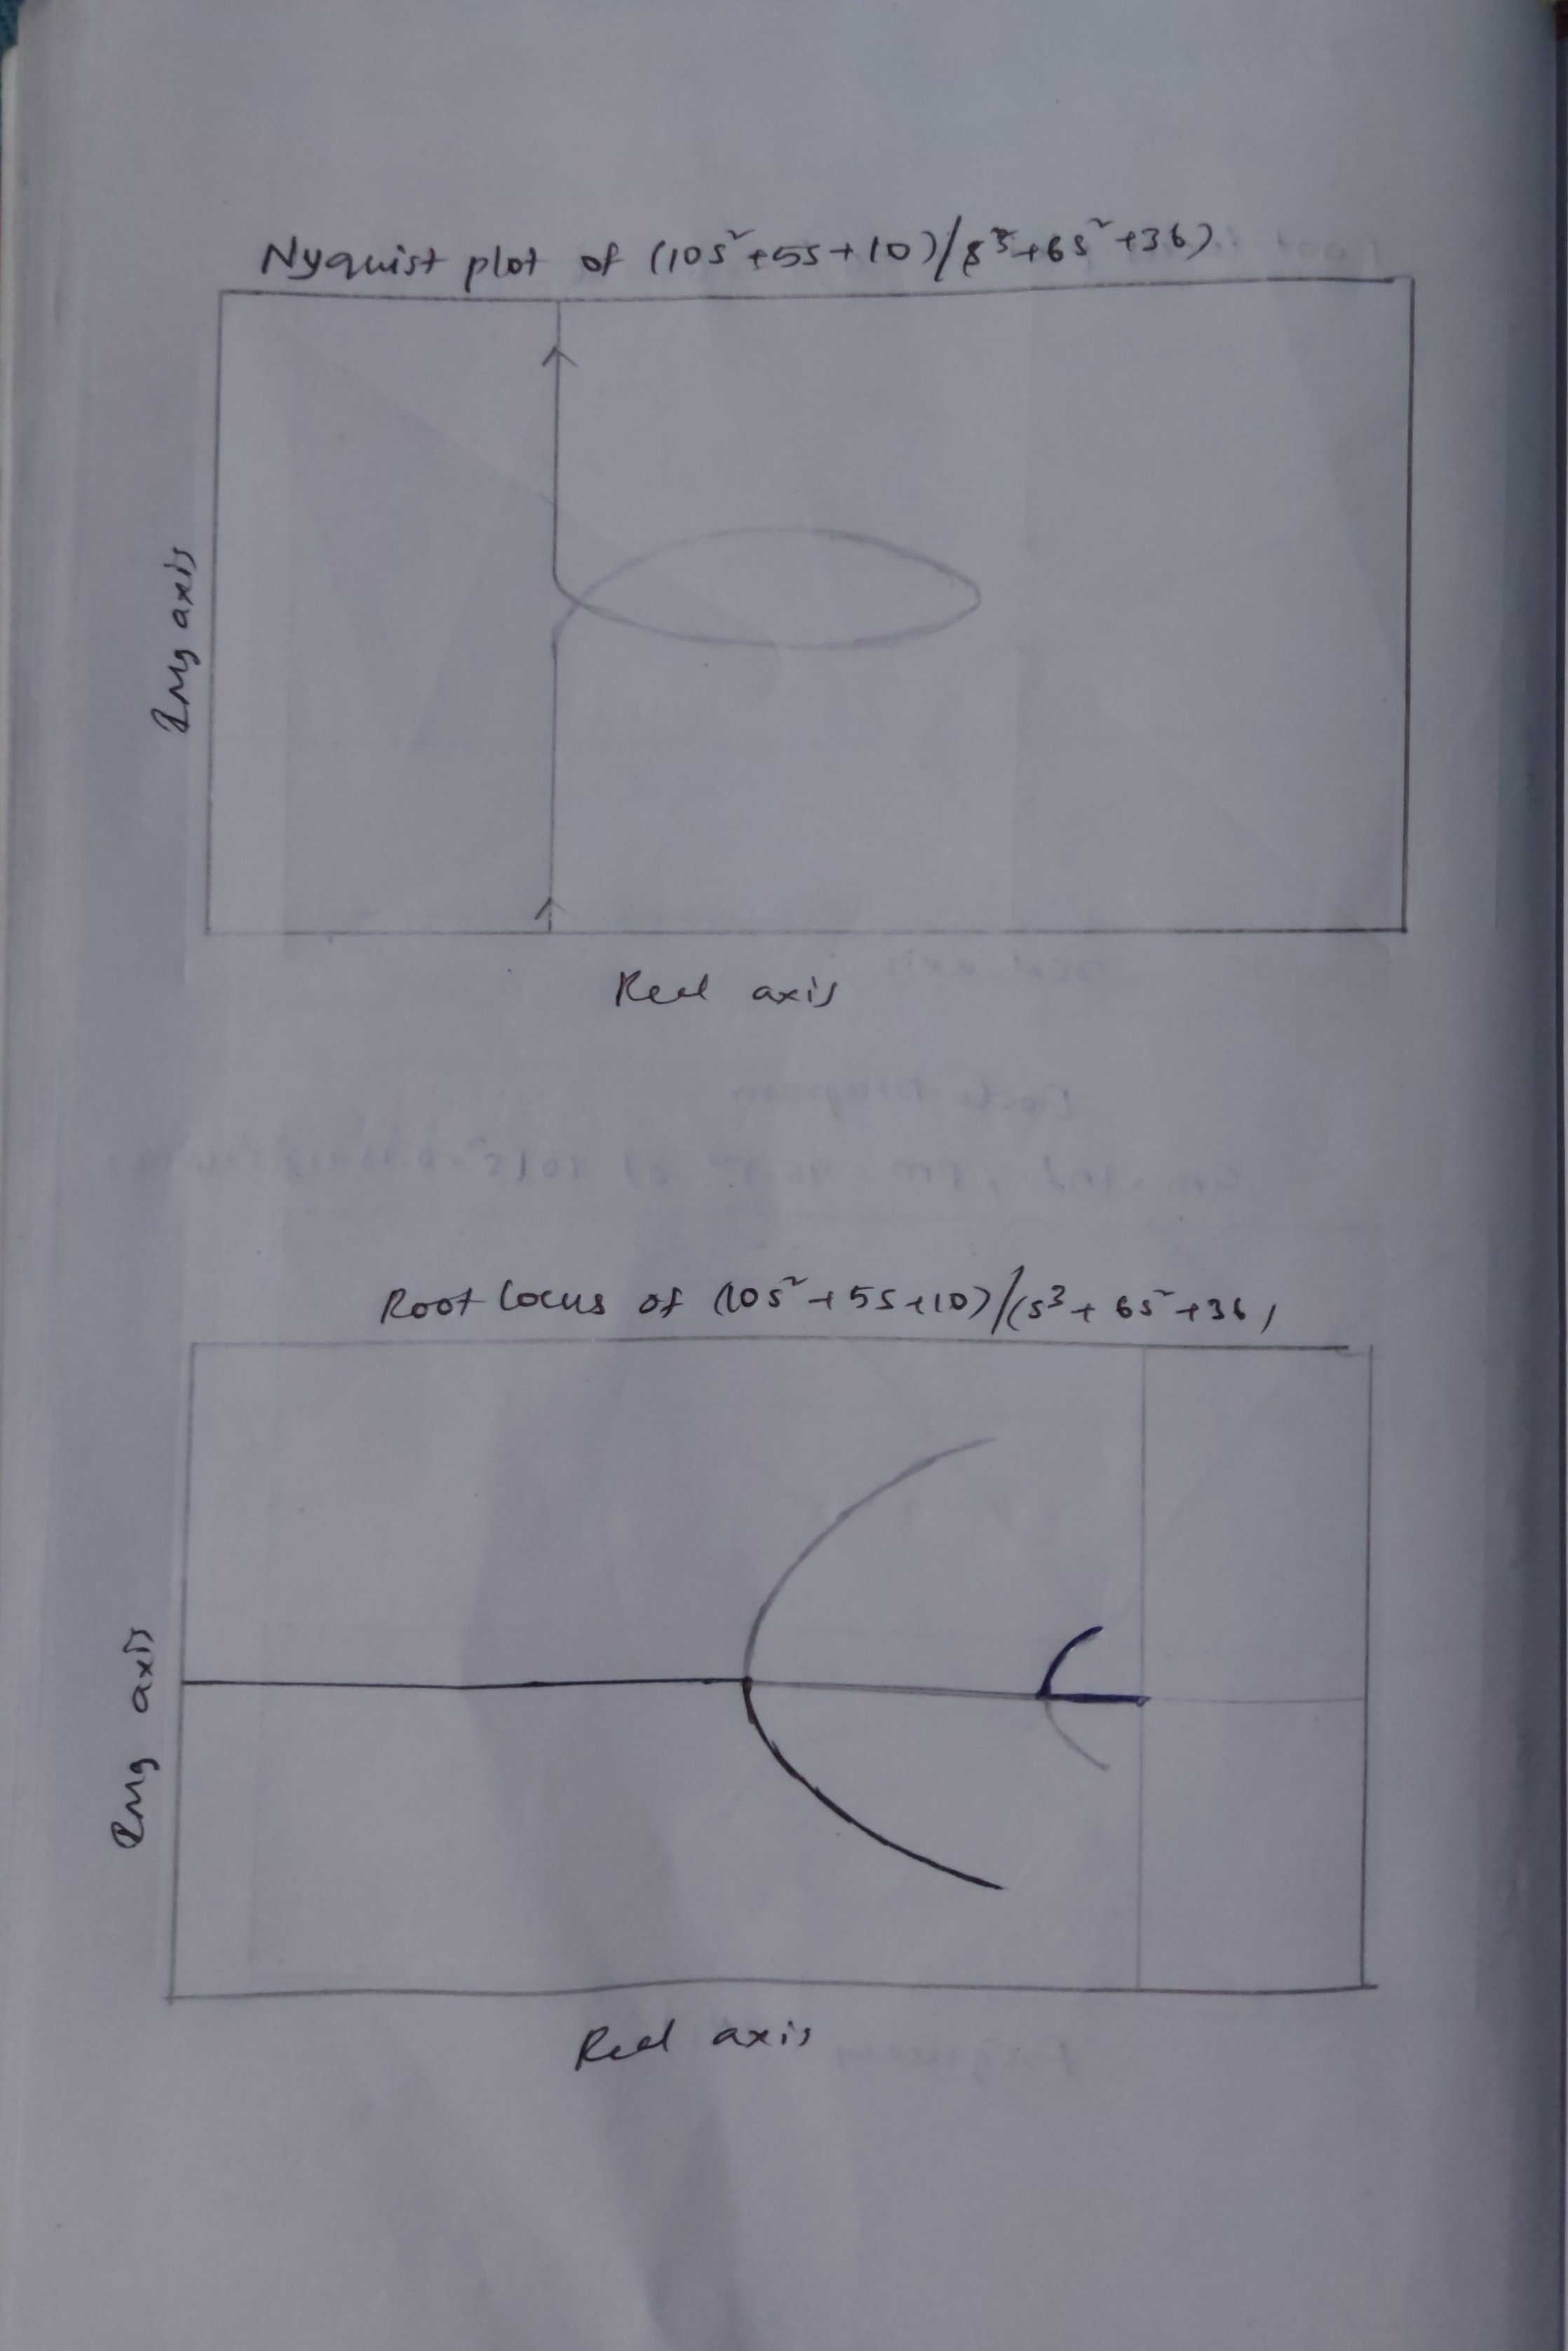 Nyquist plot of (10s²+5s+10)/s³+6s²+36)
Img axis
Real axis
Root locus of (10s²+5s+10)/(s³+6s²+36)
Img axis
Real axis